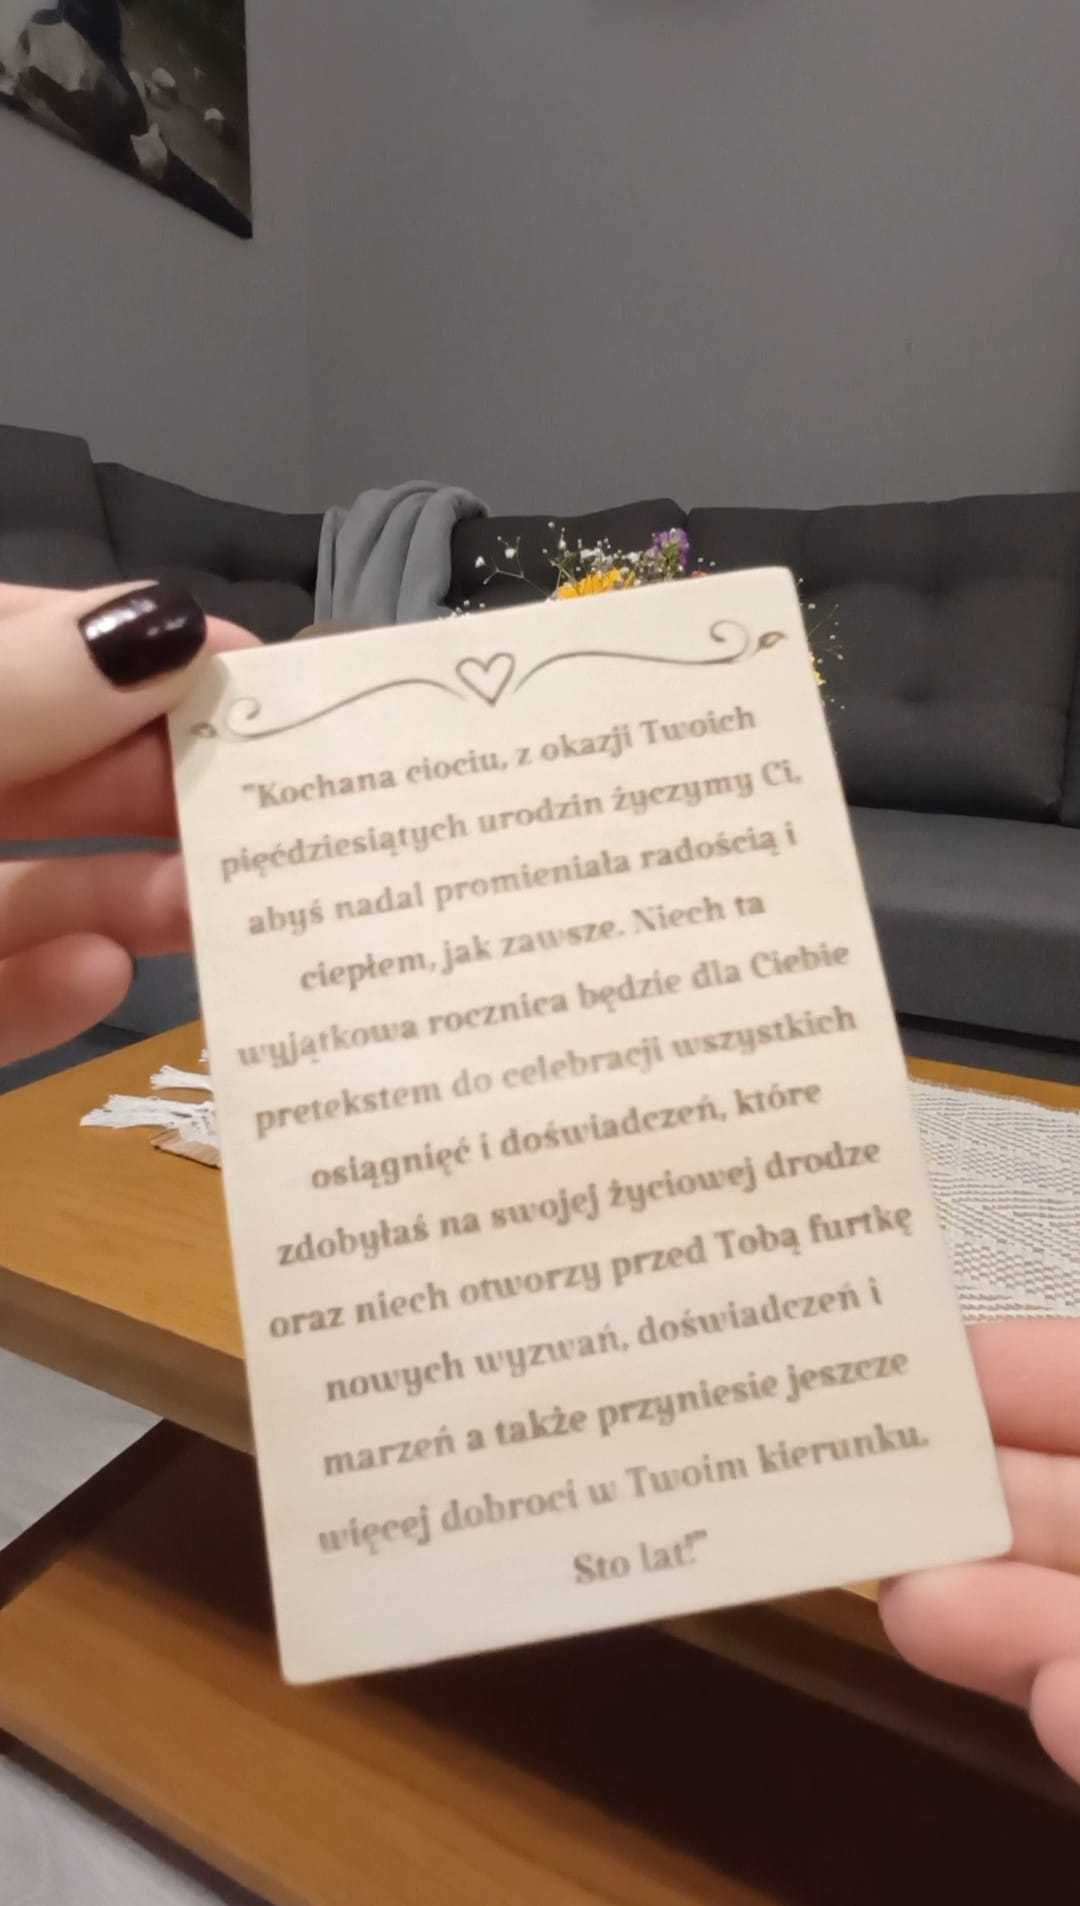 "Kochana ciociu, z okazji Twoich
pięćdziesiątych urodzin życzymy Ci,
abyś nadal promieniała radością i
ciepłem, jak zawsze. Niech ta
wyjątkowa rocznica będzie dla Ciebie
pretekstem do celebracji wszystkich
osiągnięć i doświadczeń, które
zdobyłaś na swojej życiowej drodze
oraz niech otworzy przed Tobą furtkę
nowych wyzwań, doświadczeń i
marzeń a także przyniesie jeszcze
więcej dobroci w Twoim kierunku.
Sto lat!"